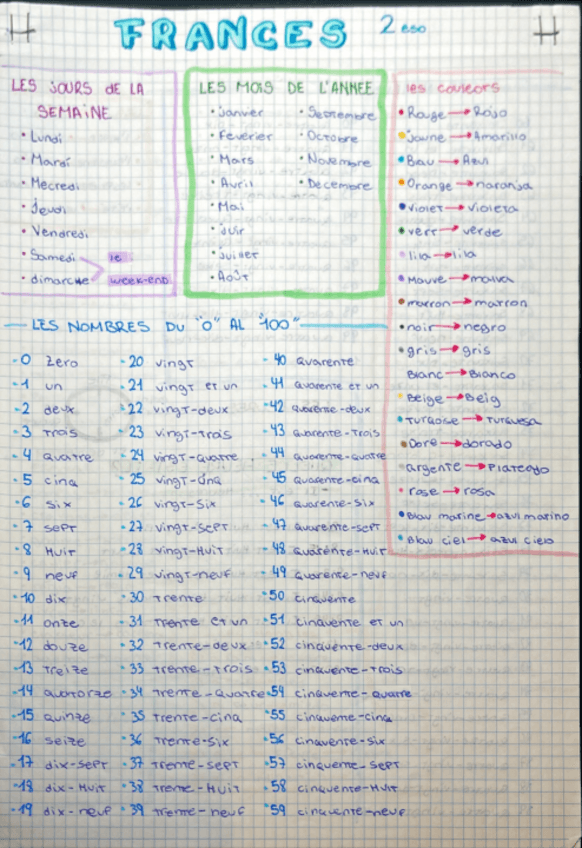 FRANCES 2 eso
LES JOURS DE LA
SEMAINE
• Lundi
• Mardi
• Mecredi
• Jeudi
• Vendredi
• Samedi
• dimarche
le
week-end
LES MOIS DE L'ANNEE
• Janvier
• Feverier
• Mars
• Avril
• Mai
• Juir
• Juillet
• Août
• Septembre
• Octobre
• Novembre
• Decembre
les couleors
• Rouge → Rojo
• Jaune → Amarillo
• Blau → Azul
• Orange → naranja
• Violet → violeta
• vert → verde
• lila → lila
• Mauve → malva
• marron → marron
• noir → negro
• gris → gris
Blanc → Blanco
• Beige → Beig
• Turqoise → Turquesa
• Dore → dorado
• argente → Plateado
• rose → rosa
• Blau marine → azul marino
• Blau ciel → azul cielo
LES NOMBRES DU "0" AL "100"
• 0 zero
• 1 un
• 2 deux
• 3 trois
• 4 quatre
• 5 cinq
• 6 six
• 7 sept
• 8 Huit
• 9 neuf
• 10 dix
• 11 onze
• 12 douze
• 13 treize
• 14 quatorze
• 15 quinze
• 16 seize
• 17 dix-sept
• 18 dix-Huit
• 19 dix-neuf
• 20 vingt
• 21 vingt et un
• 22 vingt-deux
• 23 vingt-trois
• 24 vingt-quatre
• 25 vingt-cinq
• 26 vingt-six
• 27 vingt-sept
• 28 vingt-Huit
• 29 vingt-neuf
• 30 trente
• 31 trente et un
• 32 trente-deux
• 33 trente-trois
• 34 trente-quatre
• 35 trente-cinq
• 36 trente-six
• 37 trente-sept
• 38 trente-Huit
• 39 trente-neuf
• 40 quarente
• 41 quarente et un
• 42 quarente-deux
• 43 quarente-trois
• 44 quarente-quatre
• 45 quarente-cinq
• 46 quarente-six
• 47 quarente-sept
• 48 quarente-Huit
• 49 quarente-neuf
• 50 cinquente
• 51 cinquente et un
• 52 cinquente-deux
• 53 cinquente-trois
• 54 cinquente-quatre
• 55 cinquente-cinq
• 56 cinquente-six
• 57 cinquente-sept
• 58 cinquente-Huit
• 59 cinquente-neuf